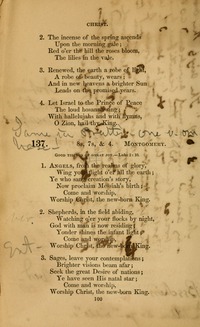 CHRIST.
2. The incense of the spring ascends
Upon the morning gale;
Red o'er the hill the roses bloom,
The lilies in the vale.
3. Renewed, the earth a robe of light,
A robe of beauty, wears;
And in new heavens a brighter Sun
Leads on the promised years.
4. Let Israel to the Prince of Peace
The loud hosanna sing;
With hallelujahs and with hymns,
O Zion, hail thy King.
137. 8s, 7s, & 4. MONTGOMERY.
1. ANGELS, from the realms of glory,
Wing your flight o'er all the earth;
Ye who sang creation's story,
Now proclaim Messiah's birth;
Come and worship,
Worship Christ, the new-born King.
2. Shepherds, in the field abiding,
Watching o'er your flocks by night,
God with man is now residing;
Yonder shines the infant light;
Come and worship,
Worship Christ, the new-born King.
3. Sages, leave your contemplations;
Brighter visions beam afar;
Seek the great Desire of nations;
Ye have seen His natal star;
Come and worship,
Worship Christ, the new-born King.